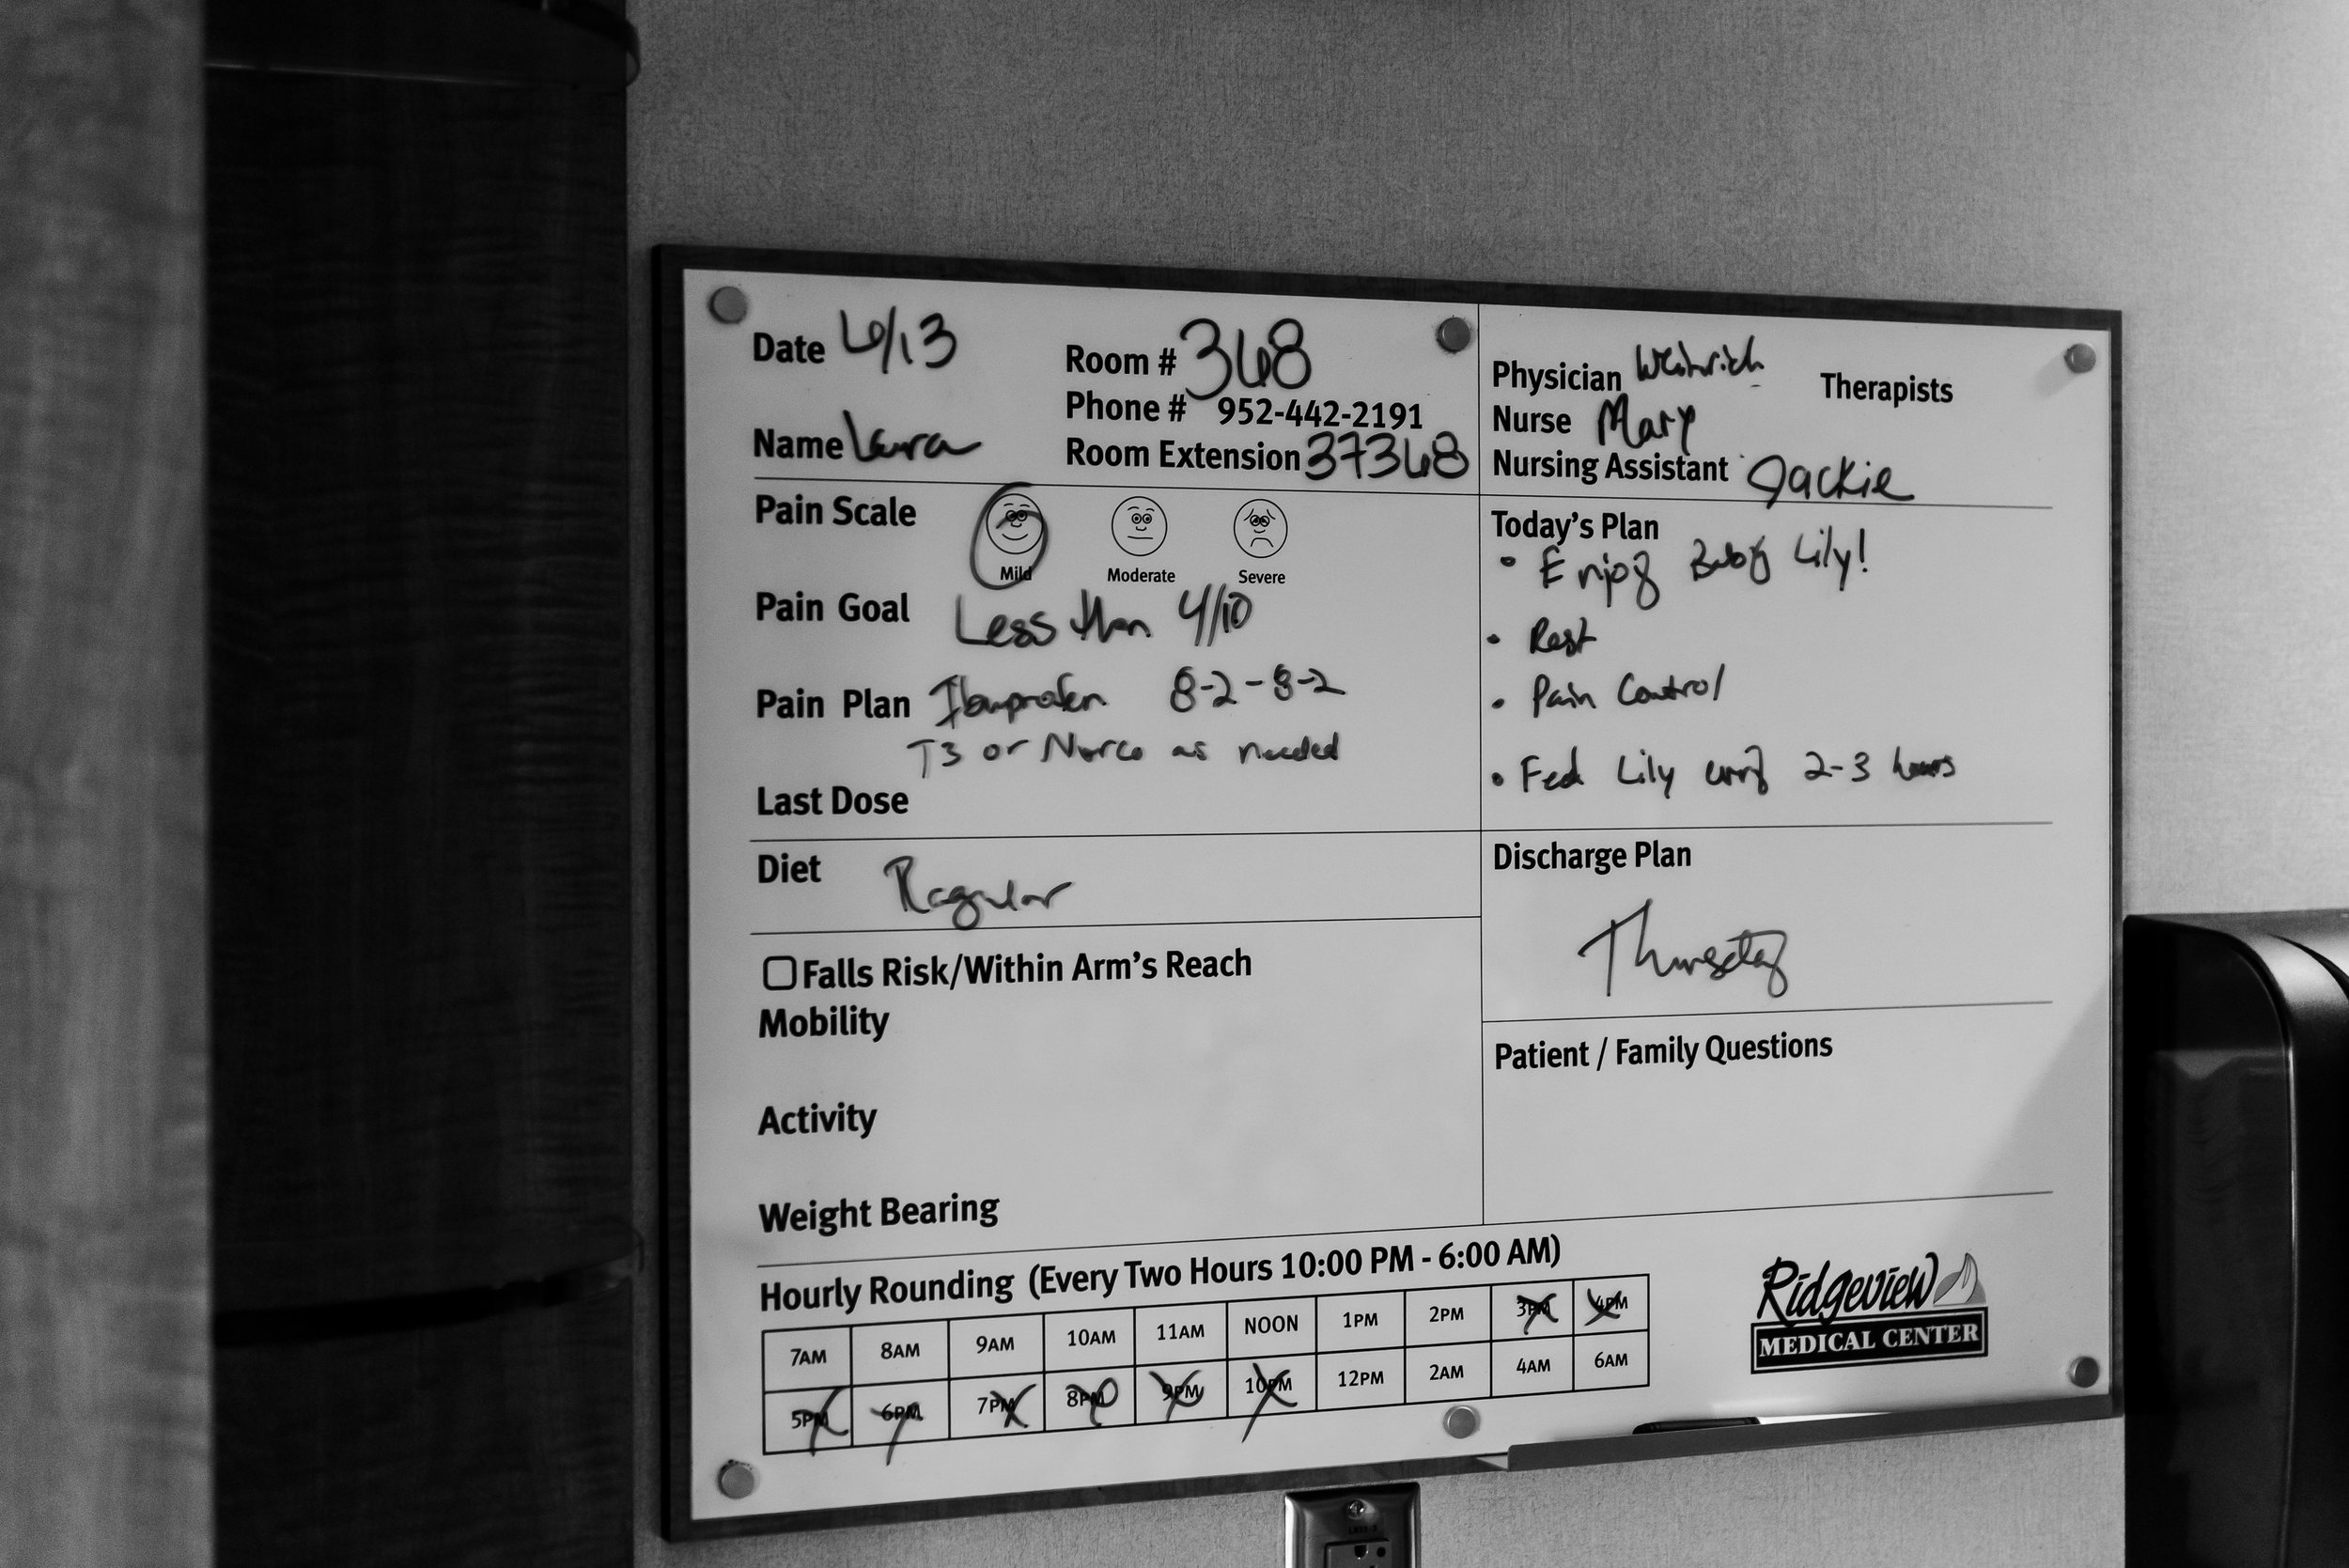 Date 6/13
Room # 368
Phone # 952-442-2191
Name Laura
Room Extension 37368
Physician Weinrich
Therapists
Nurse Mary
Nursing Assistant Jackie
Pain Scale
Mild Moderate Severe
Pain Goal Less than 4/10
Pain Plan Ibuprofen 8-2-8-2
T3 or Norco as needed
Last Dose
Diet Regular
Falls Risk/Within Arm's Reach
Mobility
Activity
Weight Bearing
Today's Plan
• Enjoy Baby Lily!
• Rest
• Pain Control
• Feed Lily every 2-3 hours
Discharge Plan
Thursday
Patient / Family Questions
Hourly Rounding (Every Two Hours 10:00 PM - 6:00 AM)
7AM 8AM 9AM 10AM 11AM NOON 1PM 2PM 3PM 4PM
5PM 6PM 7PM 8PM 9PM 10PM 12PM 2AM 4AM 6AM
Ridgeview
MEDICAL CENTER